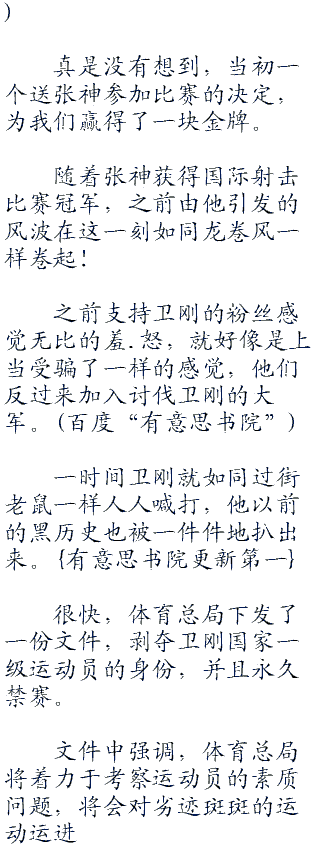 )
真是没有想到，当初一
个送张神参加比赛的决定，
为我们赢得了一块金牌。
随着张神获得国际射击
比赛冠军，之前由他引发的
风波在这一刻如同龙卷风一
样卷起！
之前支持卫刚的粉丝感
觉无比的羞.怒，就好像是上
当受骗了一样的感觉，他们
反过来加入讨伐卫刚的大
军。(百度“有意思书院”)
一时间卫刚就如同过街
老鼠一样人人喊打，他以前
的黑历史也被一件件地扒出
来。{有意思书院更新第一}
很快，体育总局下发了
一份文件，剥夺卫刚国家一
级运动员的身份，并且永久
禁赛。
文件中强调，体育总局
将着力于考察运动员的素质
问题，将会对劣迹斑斑的运
动运进